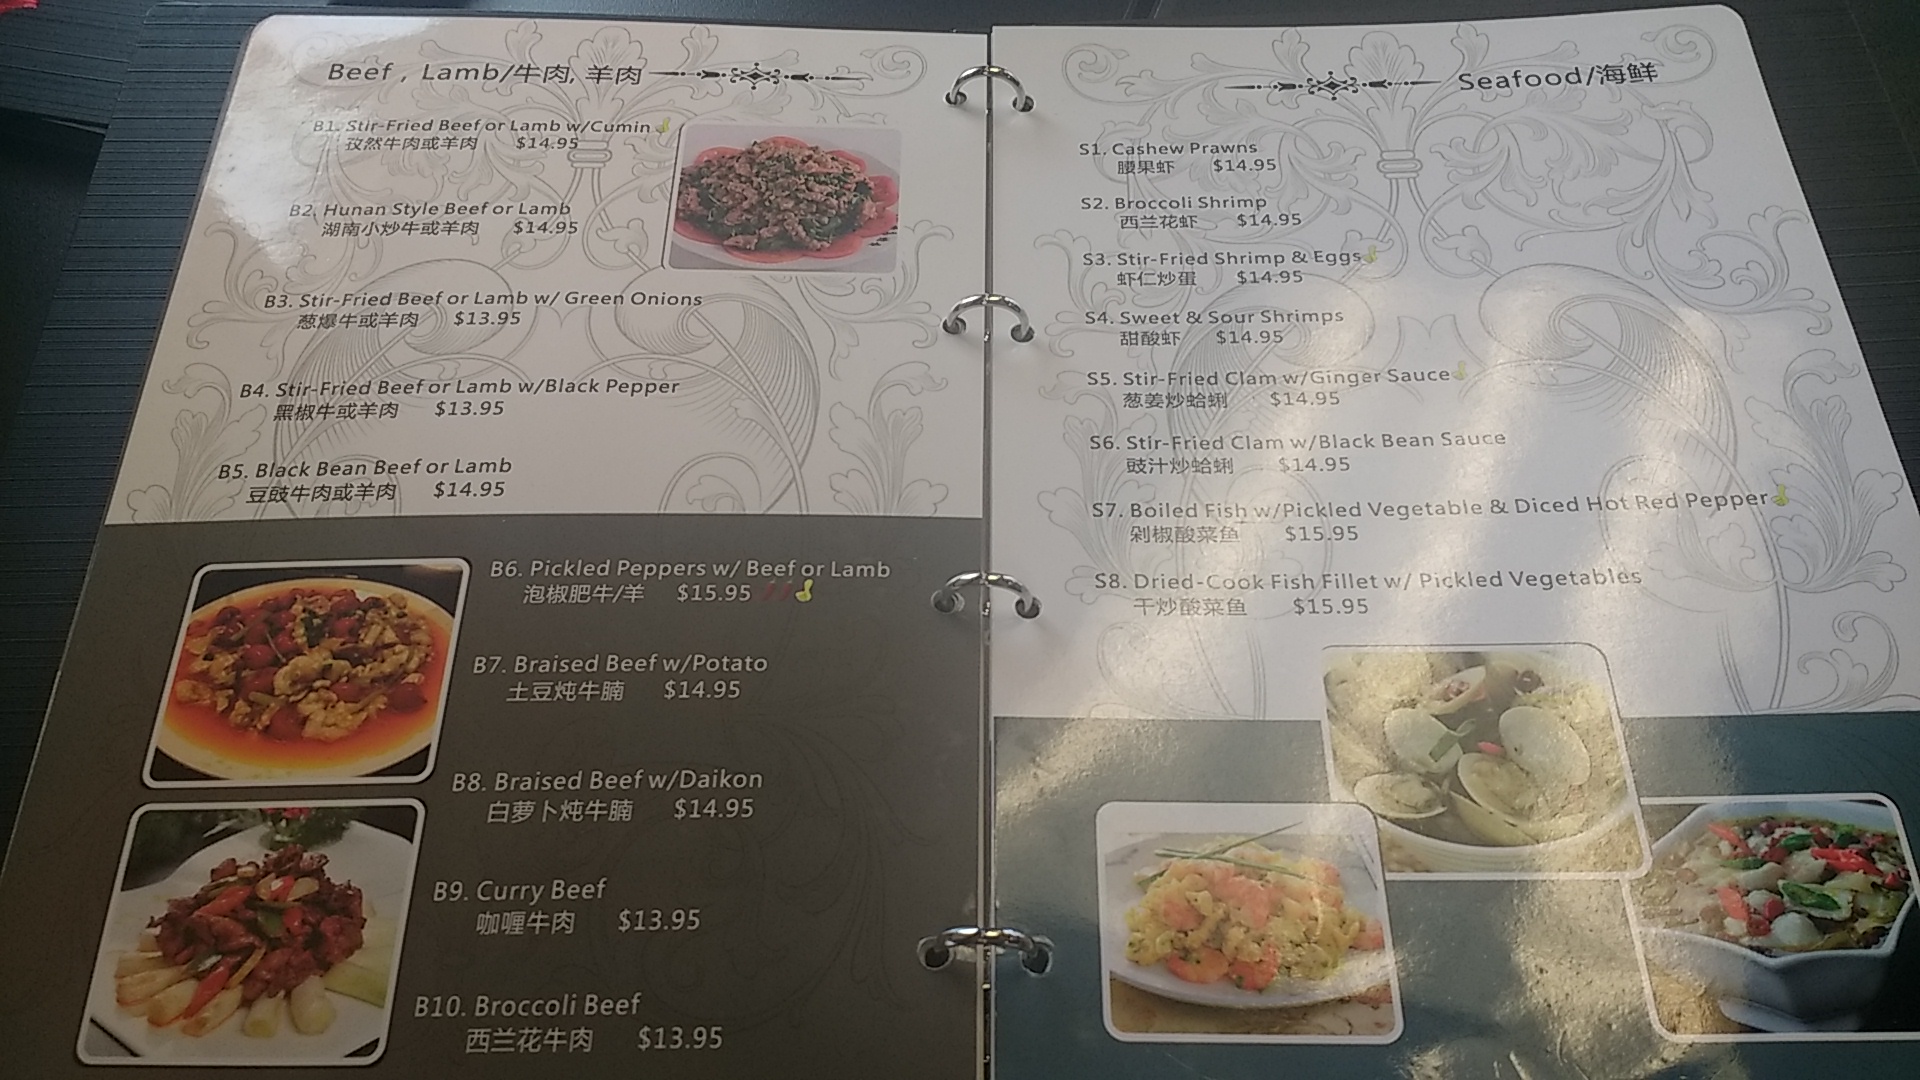 Beef , Lamb/牛肉, 羊肉
B1. Stir-Fried Beef or Lamb w/Cumin
孜然牛肉或羊肉 $14.95
B2. Hunan Style Beef or Lamb
湖南小炒牛或羊肉 $14.95
B3. Stir-Fried Beef or Lamb w/ Green Onions
葱爆牛或羊肉 $13.95
B4. Stir-Fried Beef or Lamb w/Black Pepper
黑椒牛或羊肉 $13.95
B5. Black Bean Beef or Lamb
豆豉牛肉或羊肉 $14.95
B6. Pickled Peppers w/ Beef or Lamb
泡椒肥牛/羊 $15.95
B7. Braised Beef w/Potato
土豆炖牛腩 $14.95
B8. Braised Beef w/Daikon
白萝卜炖牛腩 $14.95
B9. Curry Beef
咖喱牛肉 $13.95
B10. Broccoli Beef
西兰花牛肉 $13.95
Seafood/海鲜
S1. Cashew Prawns
腰果虾 $14.95
S2. Broccoli Shrimp
西兰花虾 $14.95
S3. Stir-Fried Shrimp & Eggs
虾仁炒蛋 $14.95
S4. Sweet & Sour Shrimps
甜酸虾 $14.95
S5. Stir-Fried Clam w/Ginger Sauce
葱姜炒蛤蜊 $14.95
S6. Stir-Fried Clam w/Black Bean Sauce
豉汁炒蛤蜊 $14.95
S7. Boiled Fish w/Pickled Vegetable & Diced Hot Red Pepper
剁椒酸菜鱼 $15.95
S8. Dried-Cook Fish Fillet w/ Pickled Vegetables
干炒酸菜鱼 $15.95